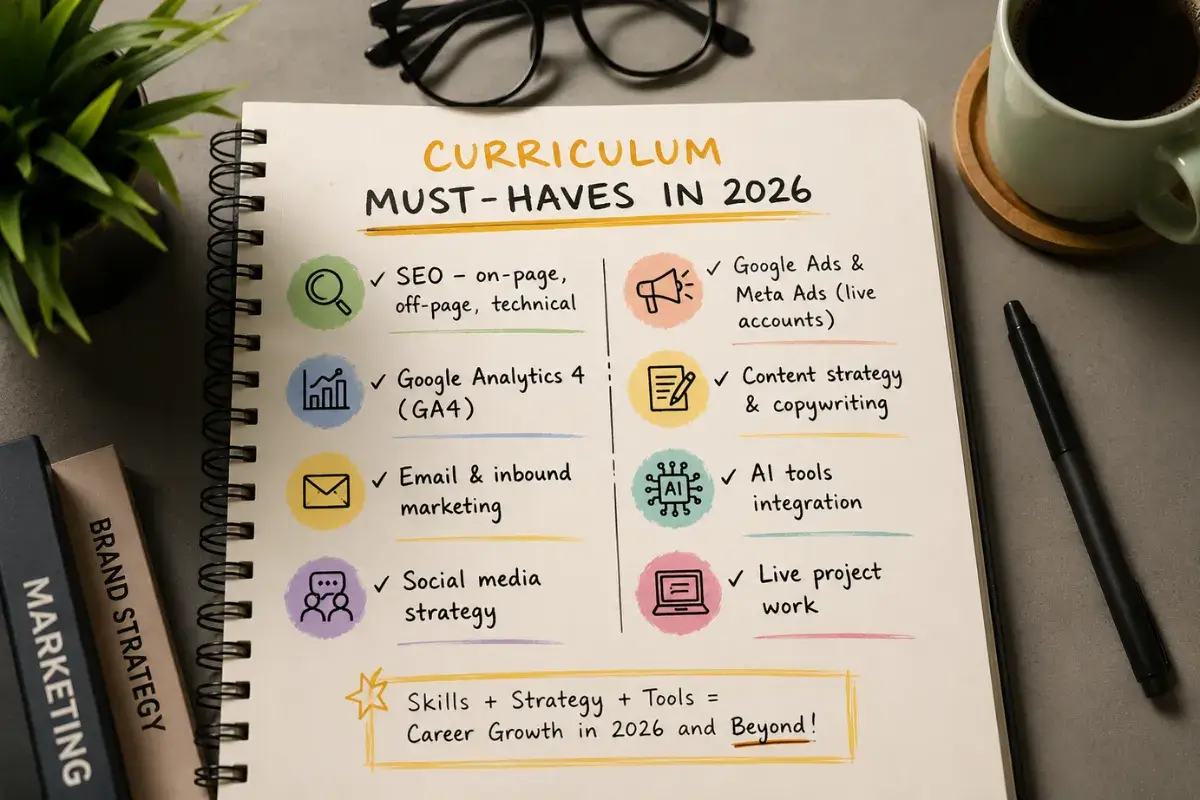 CURRICULUM
MUST-HAVES IN 2026
✓ SEO – on-page,
off-page, technical
✓ Google Analytics 4
(GA4)
✓ Email & inbound
marketing
✓ Social media
strategy
✓ Google Ads &
Meta Ads (live
accounts)
✓ Content strategy
& copywriting
AI
✓ AI tools
integration
✓ Live project
work
Skills + Strategy + Tools =
Career Growth in 2026 and Beyond!
MARKETING
BRAND STRATEGY